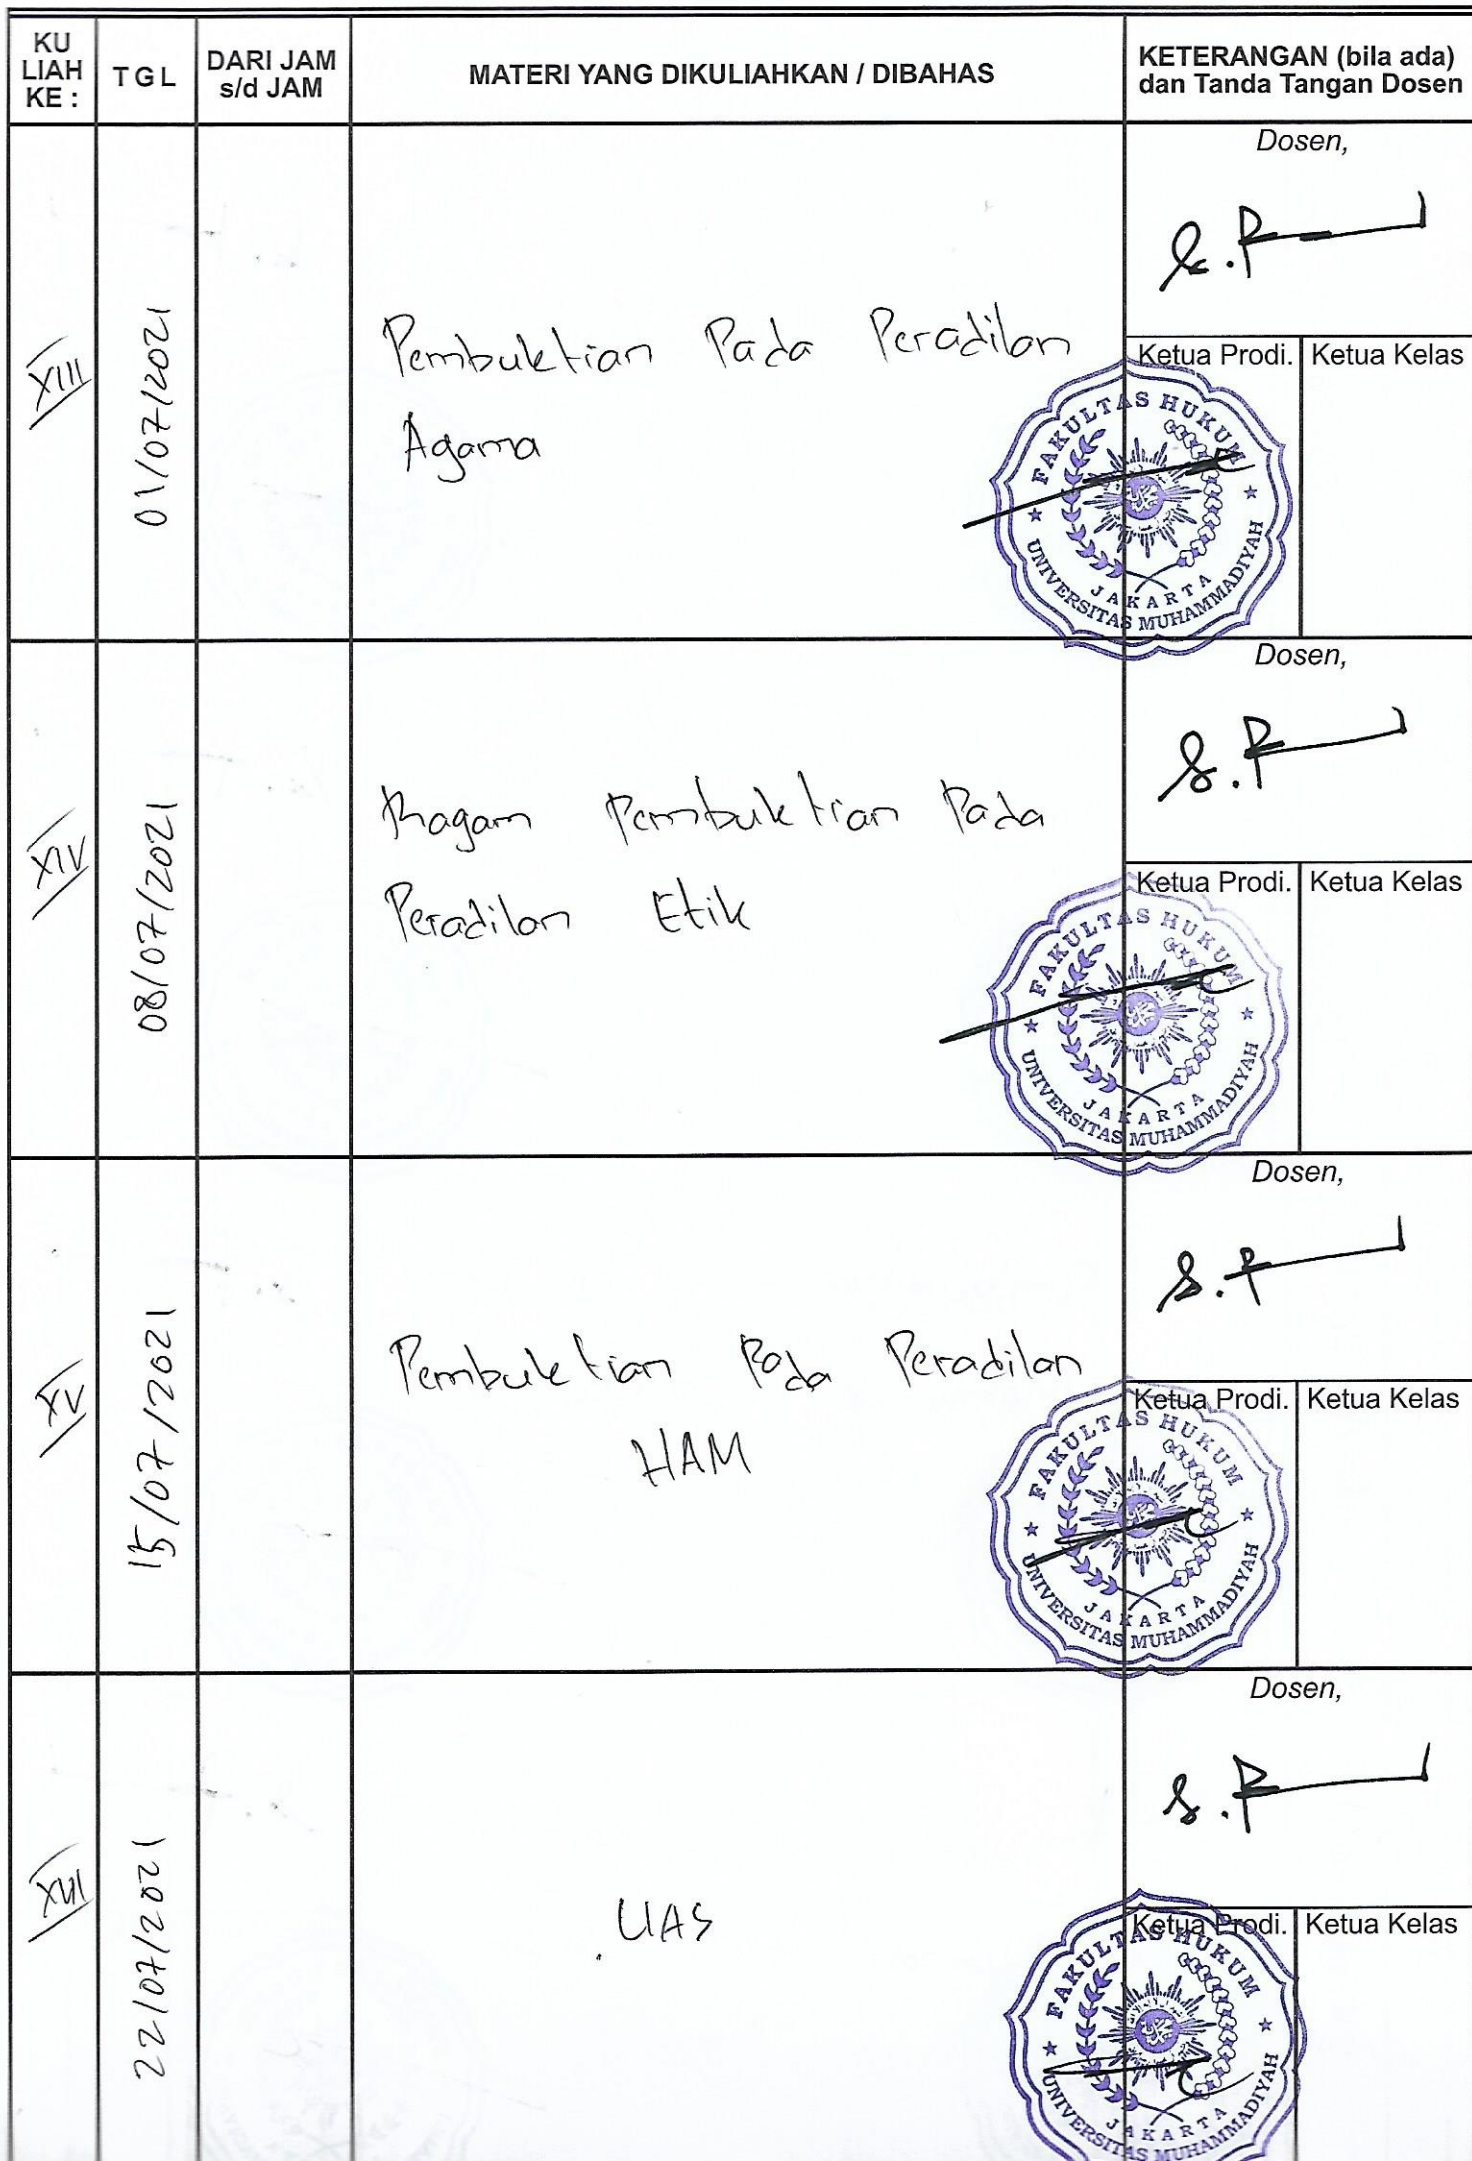 KU LIAH KE :
TGL
DARI JAM s/d JAM
MATERI YANG DIKULIAHKAN / DIBAHAS
KETERANGAN (bila ada) dan Tanda Tangan Dosen
XIII
01/07/2021
Pembuktian Pada Peradilan
Agama
Dosen,
Ketua Prodi.
Ketua Kelas
FAKULTAS HUKUM
UNIVERSITAS MUHAMMADIYAH
JAKARTA
XIV
08/07/2021
Ragam Pembuktian Pada
Peradilan Etik
Dosen,
Ketua Prodi.
Ketua Kelas
FAKULTAS HUKUM
UNIVERSITAS MUHAMMADIYAH
JAKARTA
XV
15/07/2021
Pembuktian Pada Peradilan
HAM
Dosen,
Ketua Prodi.
Ketua Kelas
FAKULTAS HUKUM
UNIVERSITAS MUHAMMADIYAH
JAKARTA
XVI
22/07/2021
UAS
Dosen,
Ketua Prodi.
Ketua Kelas
FAKULTAS HUKUM
UNIVERSITAS MUHAMMADIYAH
JAKARTA